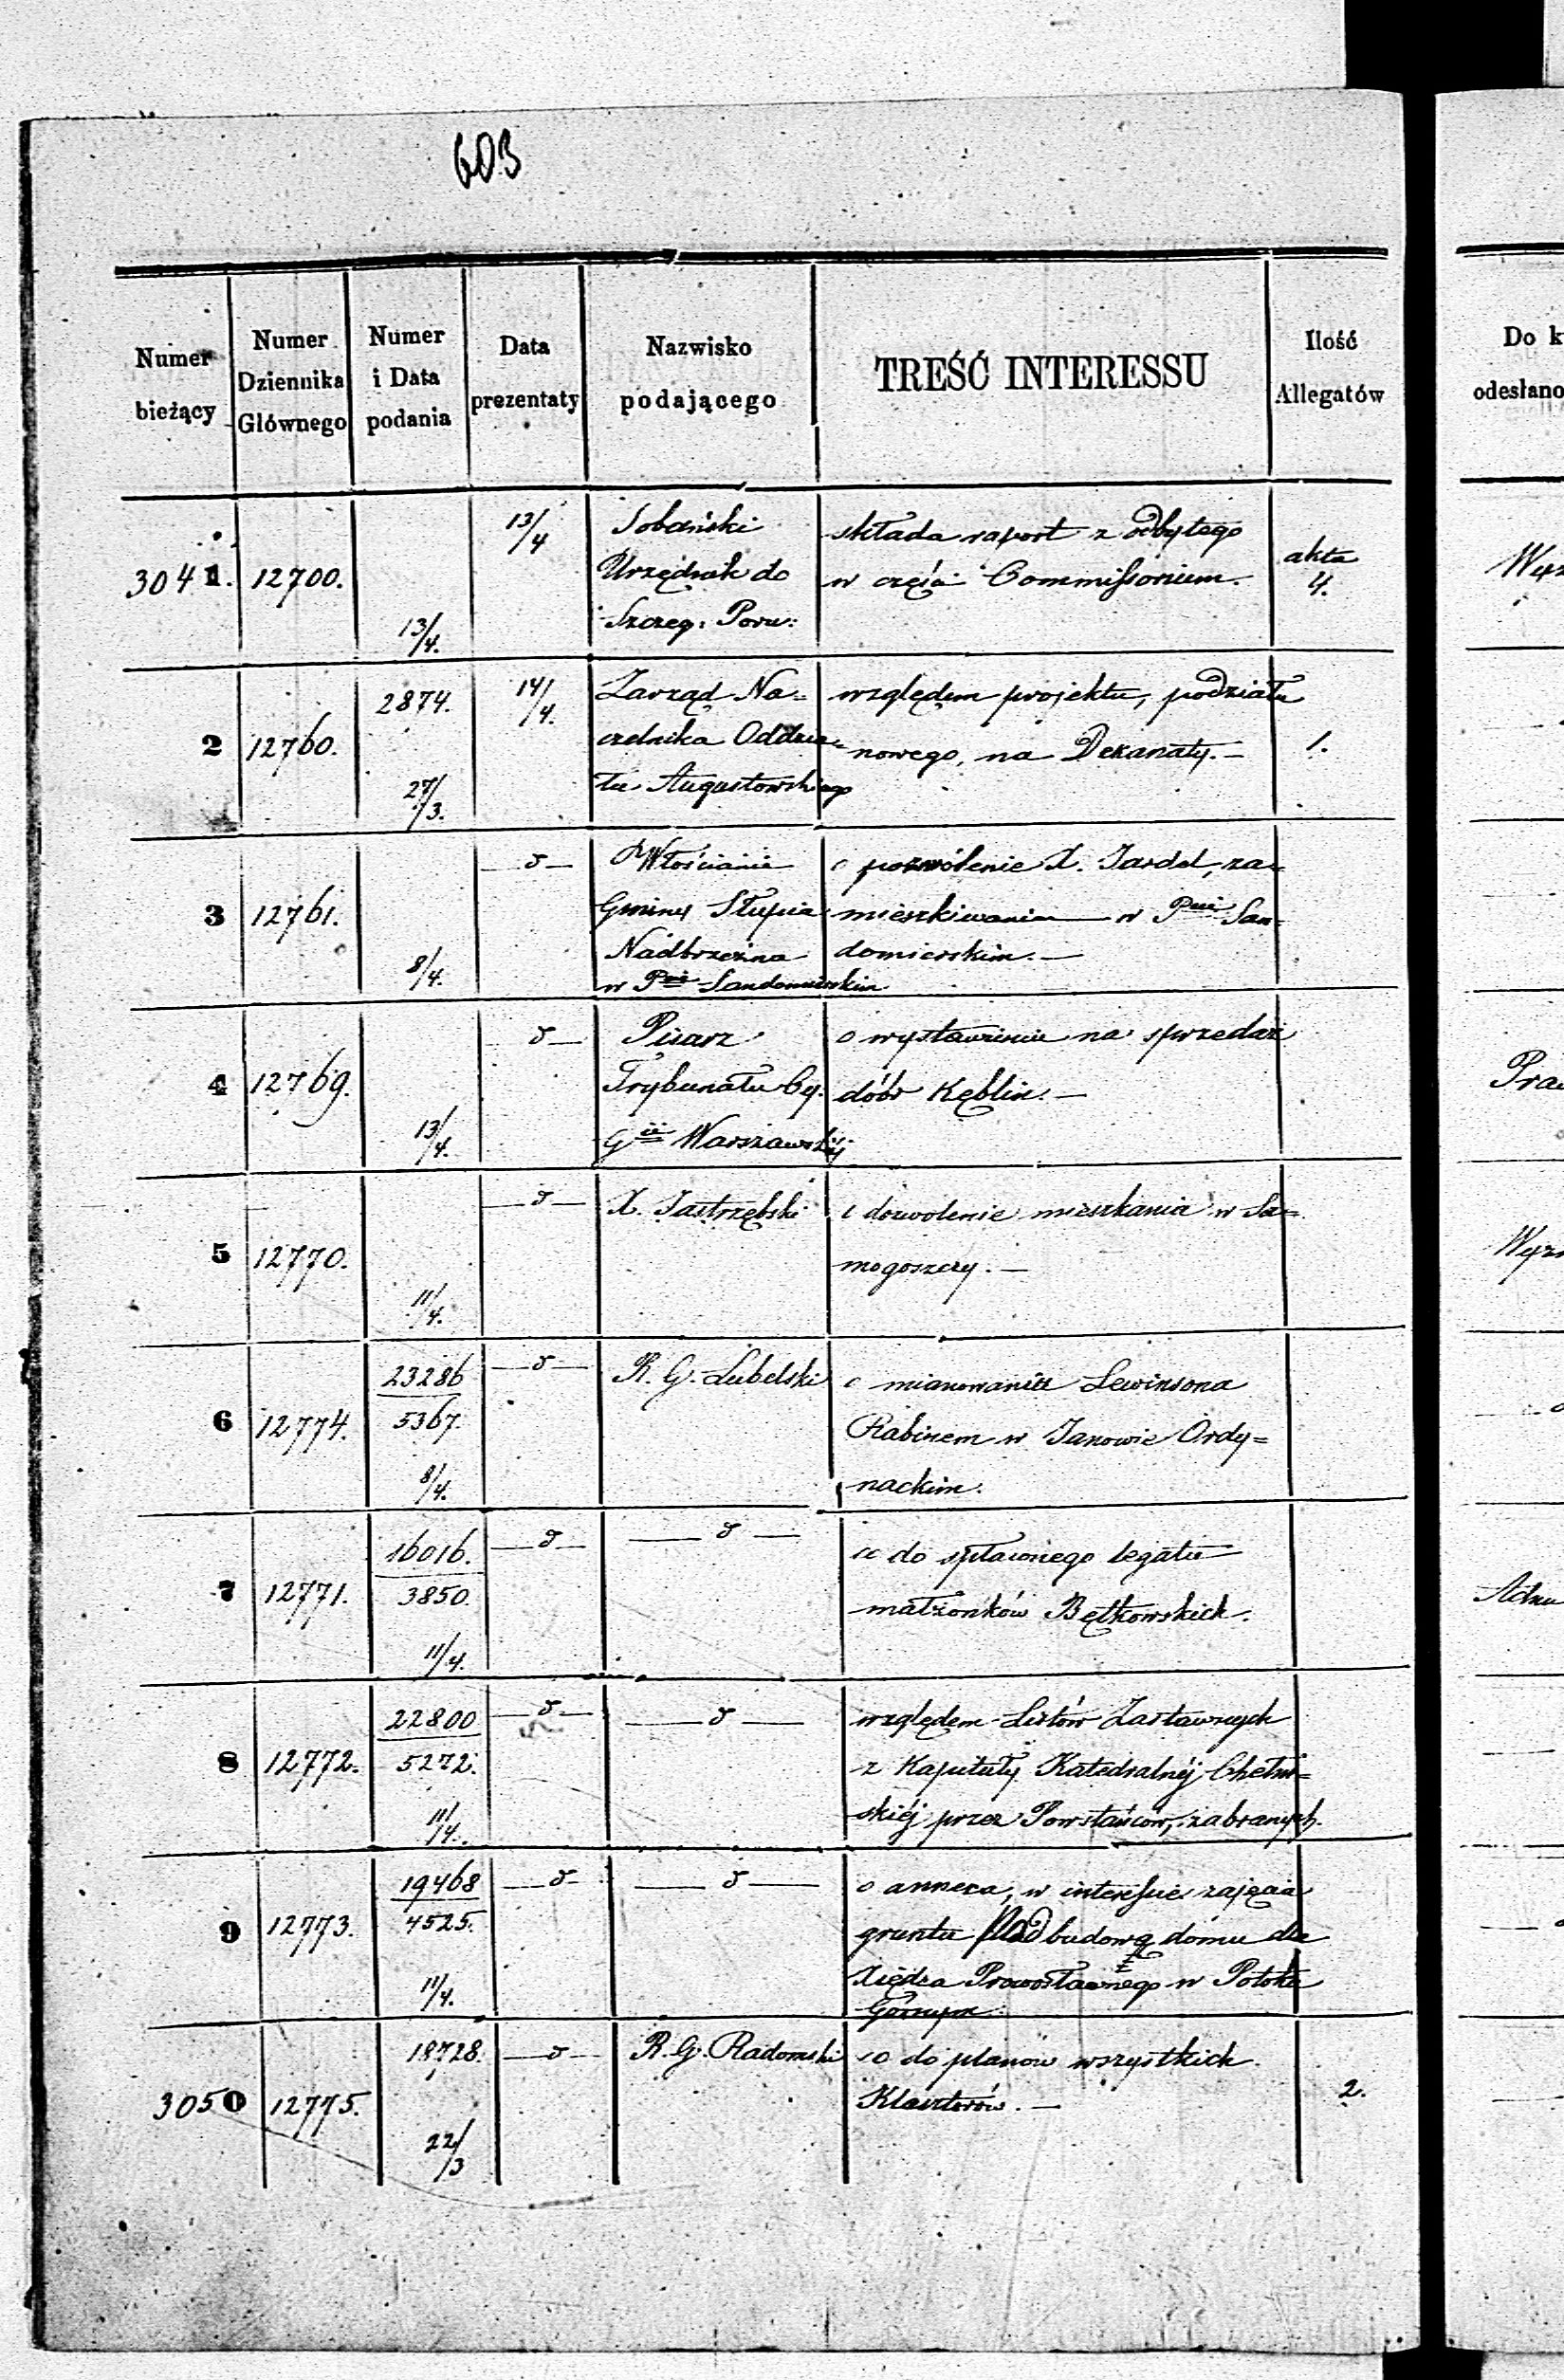 603
Numer bieżący
Numer Dziennika Głównego
Numer i Data podania
Data prezentaty
Nazwisko podającego
TREŚĆ INTERESSU
Ilość Allegatów
Do k
odesłano
3041. 12700. 13/4. 13/4
Sobański
Urzędnik do
Szczeg: Poru:
składa raport z odbytego
w części Commissorium.
akta
4.
2 12760. 2874. 27/3. 14/4.
Zarząd Na=
czelnika Oddzia=
łu Augustowskiego
względem projektu, podziału
nowego, na Dekanaty. —
1.
3 12761. 8/4. — d —
Włościanie
Gminy Słupia
Nadbrzeżna
w Pcie Sandomierskim
o pozwolenie X. Jardel, za=
mieszkiwania w Pcie San=
domierskim. —
4 12769. 13/4. d —
Pisarz
Trybunału Cy.
Gii Warszawskiéj
o wystawienie na sprzedaż
dóbr Kęblin. —
Pra
5 12770. 11/4. — d —
X. Jastrzębski
o dozwolenie mieszkania w Sa=
mogoszczy. —
6 12774. 23286
5367. 8/4. — d —
R. G. Lubelski
o mianowanie Lewinsona
Rabinem w Janowie Ordy=
nackim.
7 12771. 16016.
3850. 11/4. — d — — d —
co do spławnego legatu
małżonków Bętkowskich.
8 12772. 22800
5272. 11/4. — d — — d —
względem Listów Zastawnych
z Kapituły Katedralnéj Chełm=
skiéj przez Powstańców, zabranych.
9 12773. 19468
4525. 11/4. — d — — d —
o annexa, w interessie zajęcia
gruntu pod budowę domu dla
Xiędza Prawosławnego w Potoku
Górnym
3050 12775. 18728. 22/3 — d —
R. G. Radomski
co do planów wszystkich
Klasztorów. —
2.